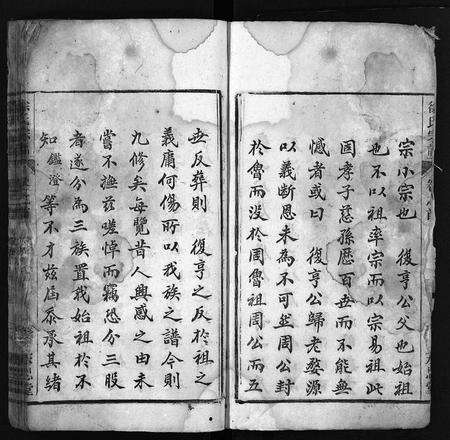 宗小宗也 復亨公父也始祖
也不以祖率宗而以宗易祖此
固孝子慈孫歷百世而不能無
憾者或曰 復亨公歸老婺源
以義斷恩未為不可然周公封
於魯而没於周魯祖周公而五
世反葬則 復亨之反於祖之
義庸何傷所以我族之譜今則
九修矣每覽昔人興感之由未
嘗不撫茲嗟悼而竊恐分三股
者遂分為三族置我始祖於不
知鑑澄等不才茲届忝承其緒